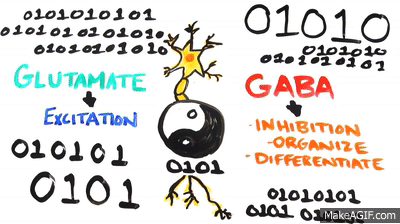 0101010101
010101010101010
01010101010
GLUTAMATE
EXCITATION
010101
0101
0101
01010
0101010
0101010101
GABA
-INHIBITION
-ORGANIZE
-DIFFERENTIATE
01010101
0101
MakeAGIF.com